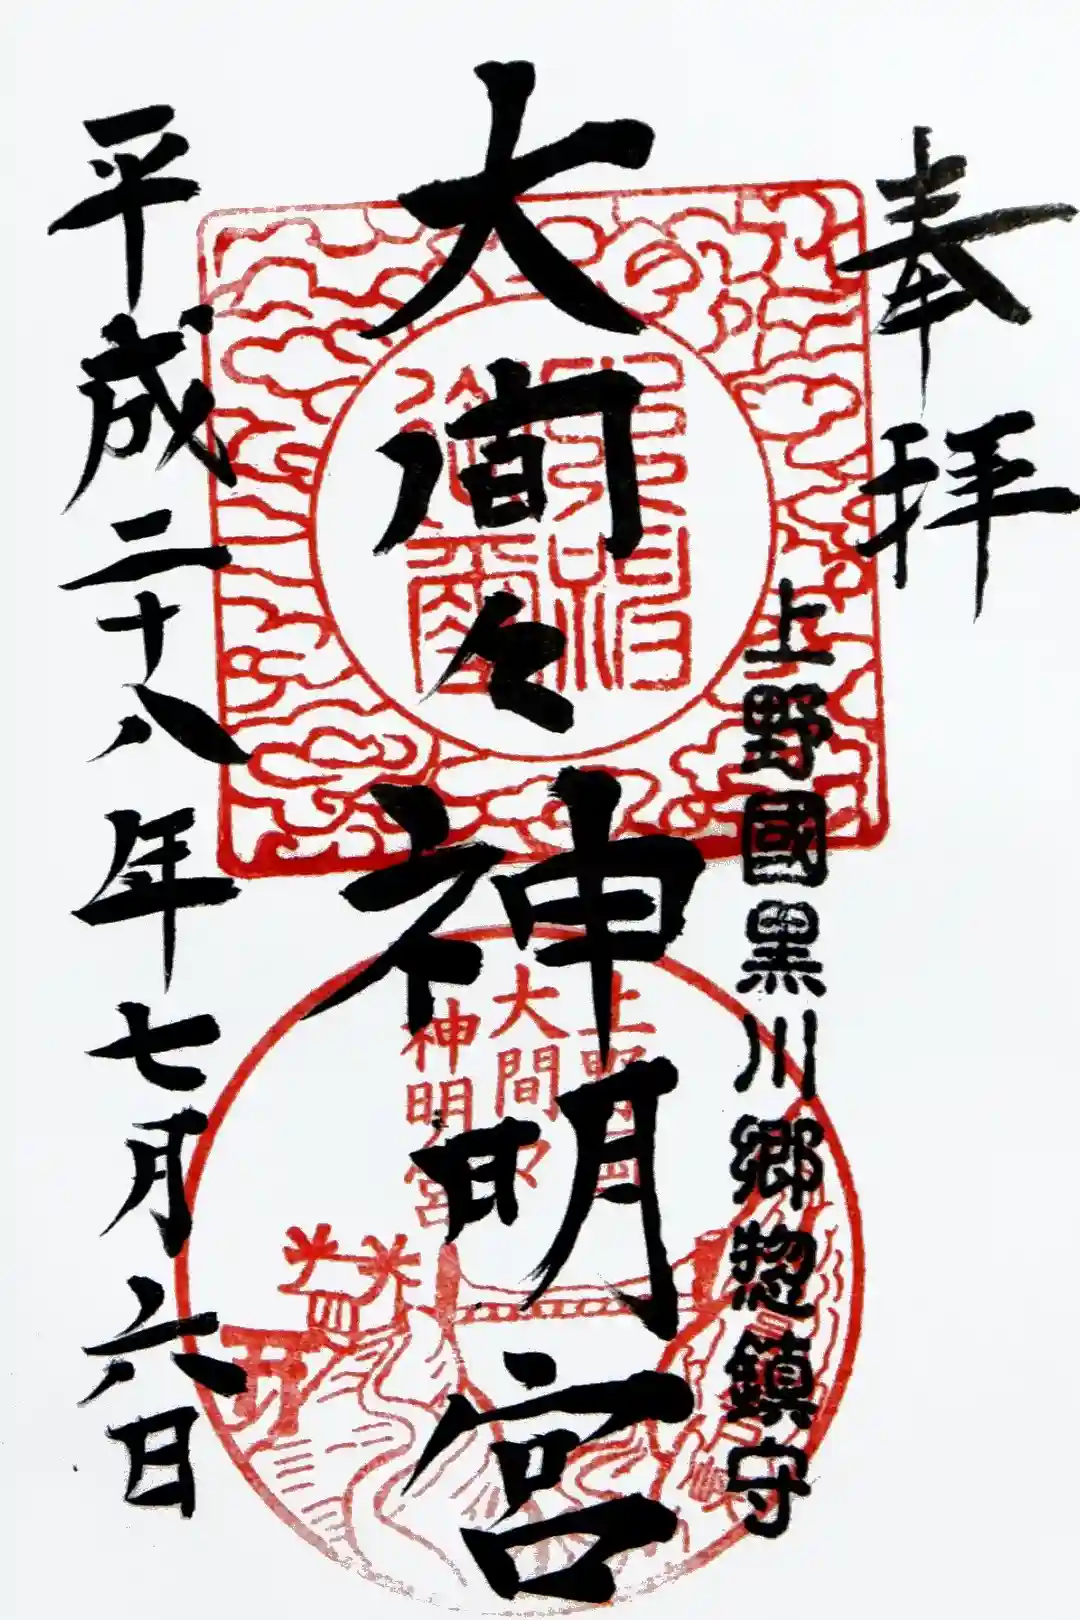 奉拝
上野國黒川郷惣鎮守
大間々神明宮
上野國
大間々
神明宮
平成二十八年七月六日